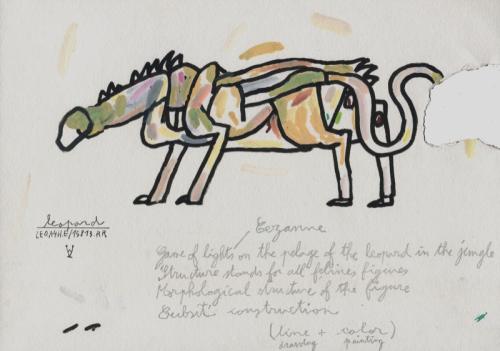 leopard
Cezanne
Game of lights on the pelage of the leopard in the jungle
Structure stands for all felines figures
Morphological structure of the figure
construction
(line + color)
drawing painting